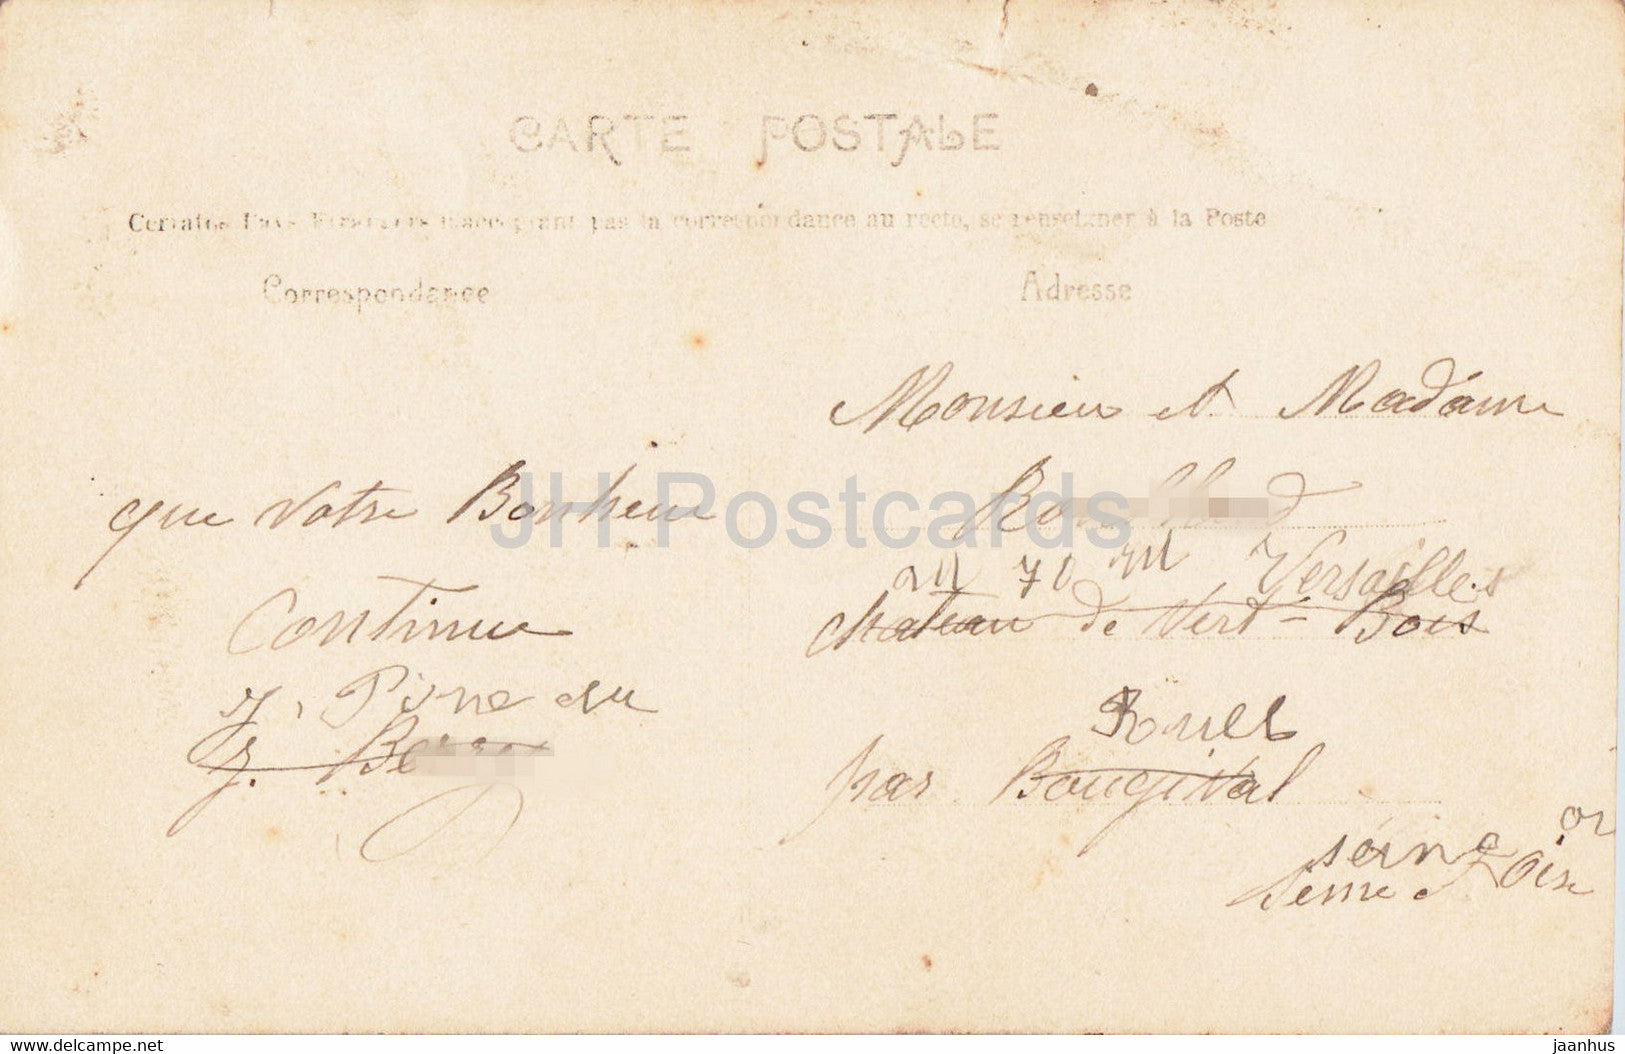 CARTE POSTALE
Certains Pays Etrangers n'acceptant pas la correspondance au recto, se renseigner à la Poste
Correspondance
Adresse
Monsieur et Madame
que votre Bonheur
JH Postcards
70 Versailles
Château de Vert-Bois
Continue
J. Pineau
Ruel
J.
par Bougival
or
seine
Seine et Oise
www.delcampe.net
jaanhus